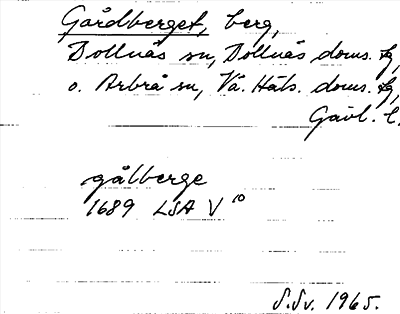 Gårdberget, berg,
Bollnäs sn, Bollnäs doms. tg,
o. Arbrå sn, Vä. Häls. doms. tg,
Gävl. l.
gålberge
1689 LSA V 10
S.Sv. 1965.